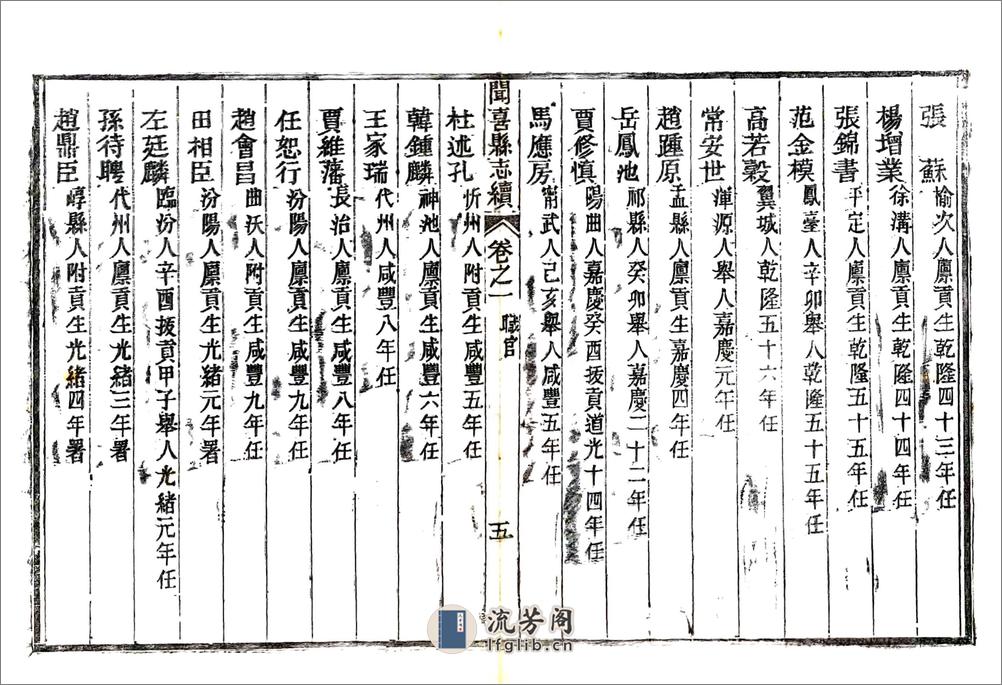 張　蘇 榆次人廩貢生乾隆四十三年任
楊增業 徐溝人廩貢生乾隆四十四年任
張錦書 平定人廩貢生乾隆五十五年任
范金模 鳳臺人辛卯舉人乾隆五十五年任
高若穀 翼城人乾隆五十六年任
常安世 渾源人舉人嘉慶元年任
趙踵原 盂縣人廩貢生嘉慶四年任
岳鳳池 祁縣人癸卯舉人嘉慶二十二年任
賈修慎 陽曲人嘉慶癸酉拔貢道光十四年任
馬應房 甯武人己亥舉人咸豐五年任
聞喜縣志續 卷之一 職官 五
杜述孔 忻州人附貢生咸豐五年任
韓鍾麟 神池人廩貢生咸豐六年任
王家瑞 代州人咸豐八年任
賈維藩 長治人廩貢生咸豐八年任
任恕行 汾陽人廩貢生咸豐九年任
趙會昌 曲沃人附貢生咸豐九年任
田相臣 汾陽人廩貢生光緒元年署
左廷麟 臨汾人辛酉拔貢甲子舉人光緒元年任
孫待聘 代州人廩貢生光緒三年署
趙鼎臣 崞縣人附貢生光緒四年署
流芳阁
lfglib.cn